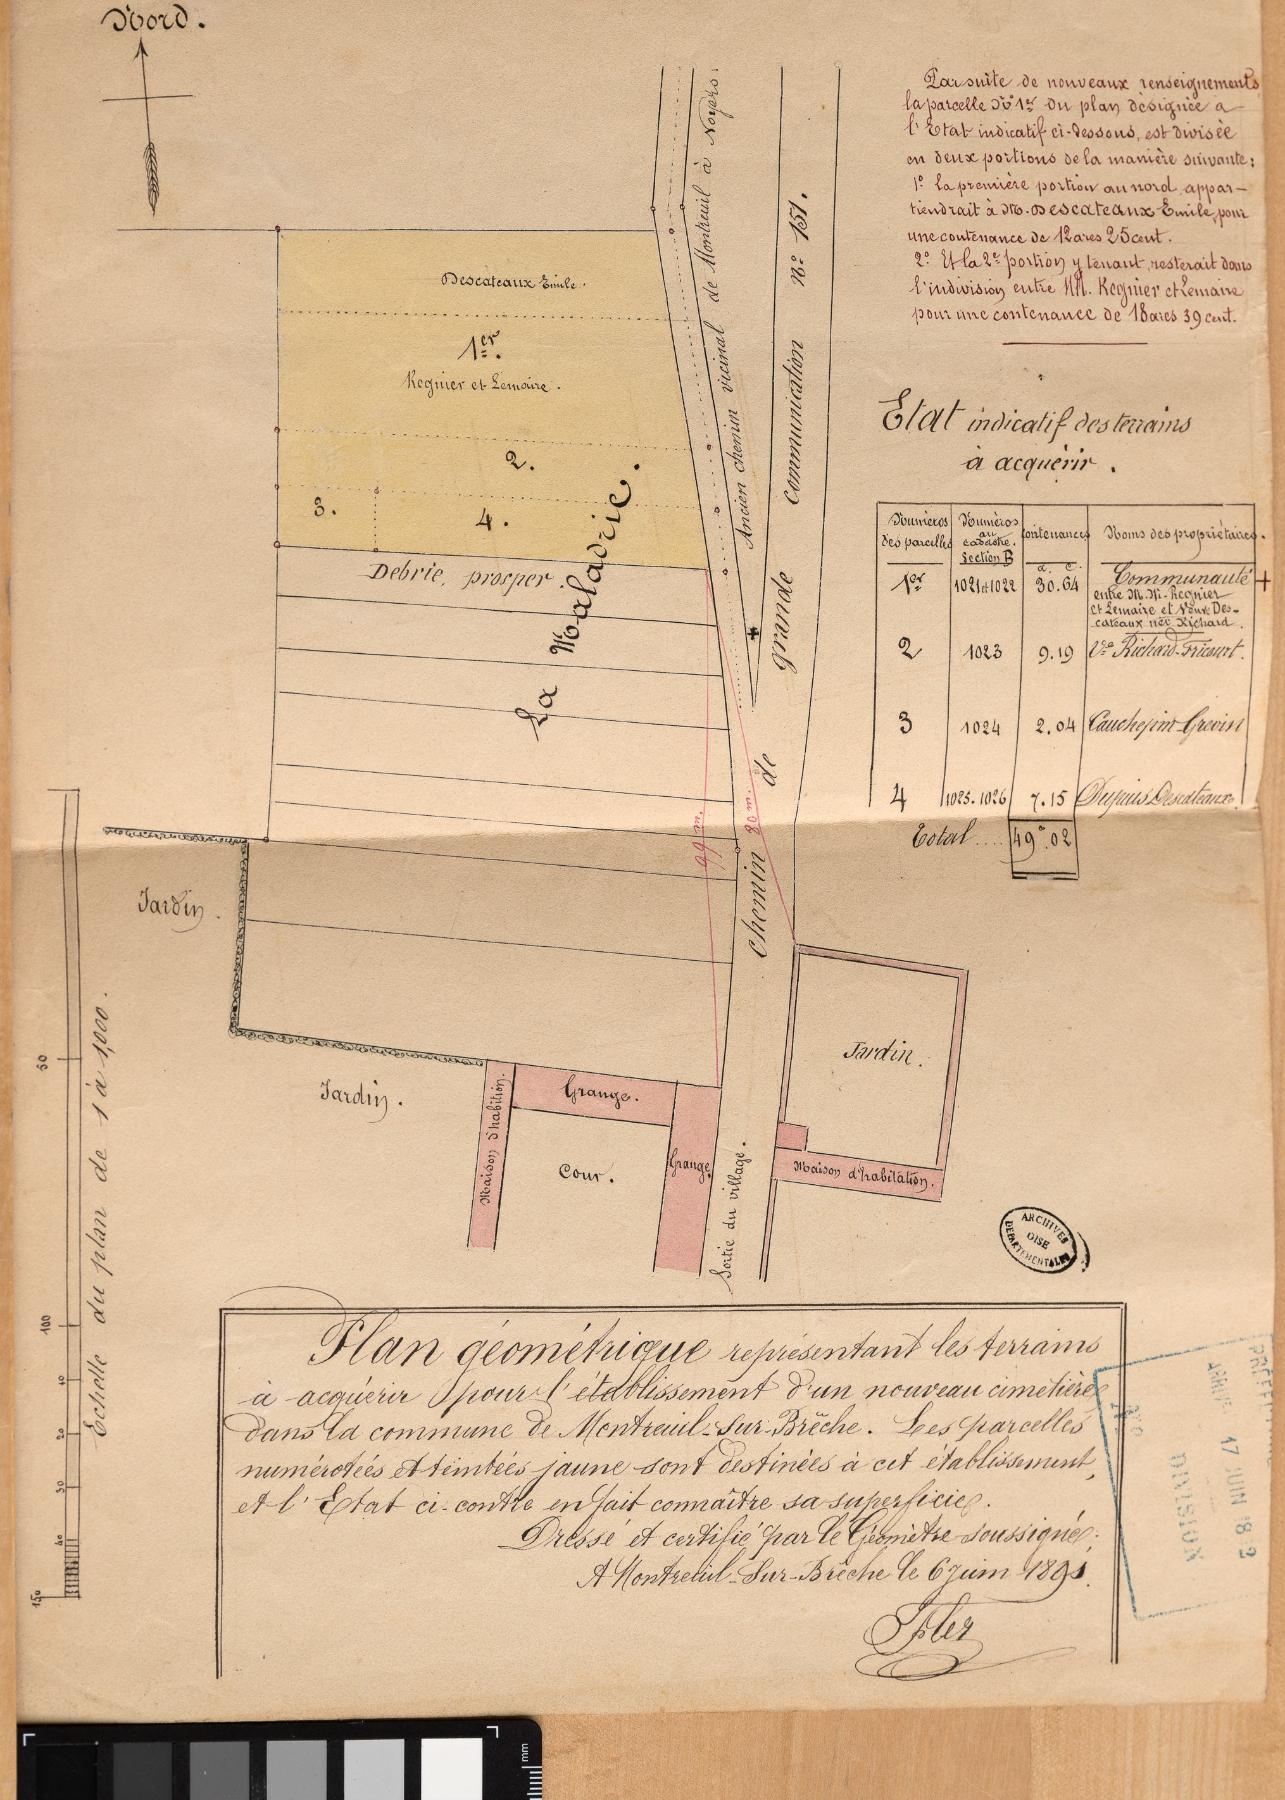 Nord.
Par suite de nouveaux renseignements
la parcelle N° 1er du plan désignée a
l'Etat indicatif ci-dessous, est divisée
en deux portions de la manière suivante:
1° la première portion au nord, appar-
tiendrait à M. Descateaux Emile, pour
une contenance de 12 ares 25 cent.
2° Et la 2e portion y tenant, resterait dans
l'indivision entre MM. Regnier et Lemaire
pour une contenance de 18 ares 39 cent.
Etat indicatif des terrains
à acquérir.
Numéros des parcelles | Numéros au cadastre. Section B | Contenances | Noms des propriétaires.
a. c.
1er 1021 et 1022 30.64 Communauté +
entre M.M. Regnier
et Lemaire et Veuve Des-
cateaux née Richard.
2 1023 9.19 Vve Richard-Fricourt.
3 1024 2.04 Cauchepin-Grevin
4 1025.1026 7.15 Dupuis Descateaux.
Total .... 49a.02
Descateaux Emile.
1er.
Regnier et Lemaire.
2.
3.
4.
Debrie, prosper.
La Maladrie.
Ancien chemin vicinal de Montreuil à Noyers.
chemin de grande communication n° 151.
99 m.
80 m.
Jardin.
Jardin.
Jardin.
Maison d'habition.
Grange.
Cour.
Grange
Sortie du village.
Maison d'habitation.
ARCHIVES
OISE
DEPARTEMENTALES
Echelle du plan de 1 à 1,000.
50
100
10
20
30
40
150
Plan géométrique représentant les terrains
à acquérir pour l'établissement d'un nouveau cimetière
dans la commune de Montreuil-sur-Brêche. Les parcelles
numérotées et teintées jaune sont destinées à cet établissement,
et l'Etat ci-contre en fait connaître sa superficie.
Dressé et certifié par le Géomètre soussigné.
A Montreuil-Sur-Brêche le 6 juin 1891.
17 JUIN 18
DIVISION
mm